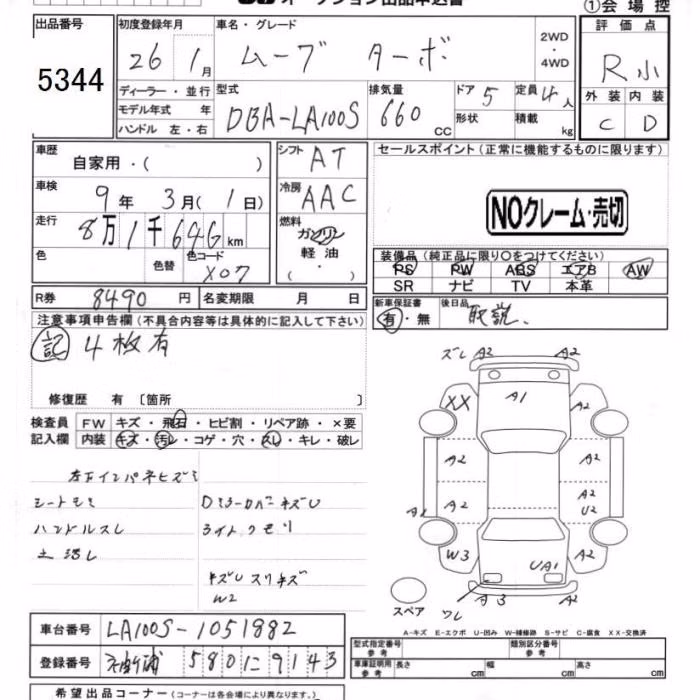 オークション出品申込書
①会場控
出品番号
5344
初度登録年月
26 1月
車名・グレード
ムーブ ターボ
2WD
・
4WD
評価点
R小
外装 内装
C D
ディーラー・並行
モデル年式 年
ハンドル 左・右
型式
DBA-LA100S
排気量
660 CC
ドア 5
定員 4人
形状
積載 kg
車歴
自家用・( )
シフト AT
セールスポイント (正常に機能するものに限ります)
車検
9年 3月( 1日)
冷房 AAC
NOクレーム・売切
走行
8万1千646km
燃料
ガソリン
軽油
・
色
色替
色コード
X07
装備品 (純正品に限り○をつけてください)
PS PW ABS エアB AW
SR ナビ TV 本革
R券 8490円 名変期限 月 日
新車保証書
有・無
後日品
取説、
注意事項申告欄 (不具合内容等は具体的に記入して下さい)
記 4枚有
修復歴 有 [箇所 ]
検査員
記入欄
FW キズ・飛石・ヒビ割・リペア跡・×要
内装 キズ・汚レ・コゲ・穴・スレ・キレ・破レ
シートモミ
ハンドルスレ
ライトクモリ
キズU スリキズ
W2
ズレ A2 A2
A1
XX A2
A2 A2
A2 A2
U2
A1
W3 A2
UA1
A3 A2
ワレ
スペア
A-キズ E-エクボ U-凹み W-補修跡 S-サビ C-腐食 XX-交換済
車台番号 LA100S-1051882
登録番号 580に9143
型式指定番号
参考
類別区分番号
参考
車庫証明用
参考
長さ cm 幅 cm 高さ cm
希望出品コーナー (コーナーは各会場により異なります。)